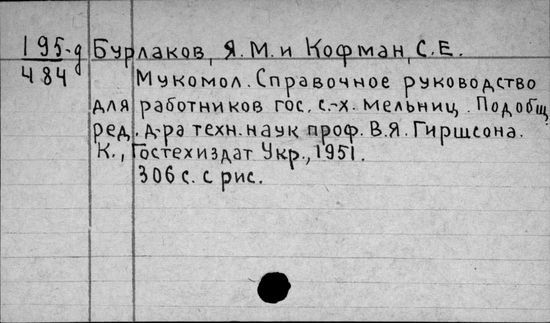 195-д Бурлаков, Я.М. и Кофман, С.Е.
484 Мукомол. Справочное руководство
для работников гос. с.-х. мельниц. Под общ.
ред. д-ра техн. наук проф. В.Я. Гиршсона.
К., Гостехиздат Укр., 1951.
306 с. с рис.